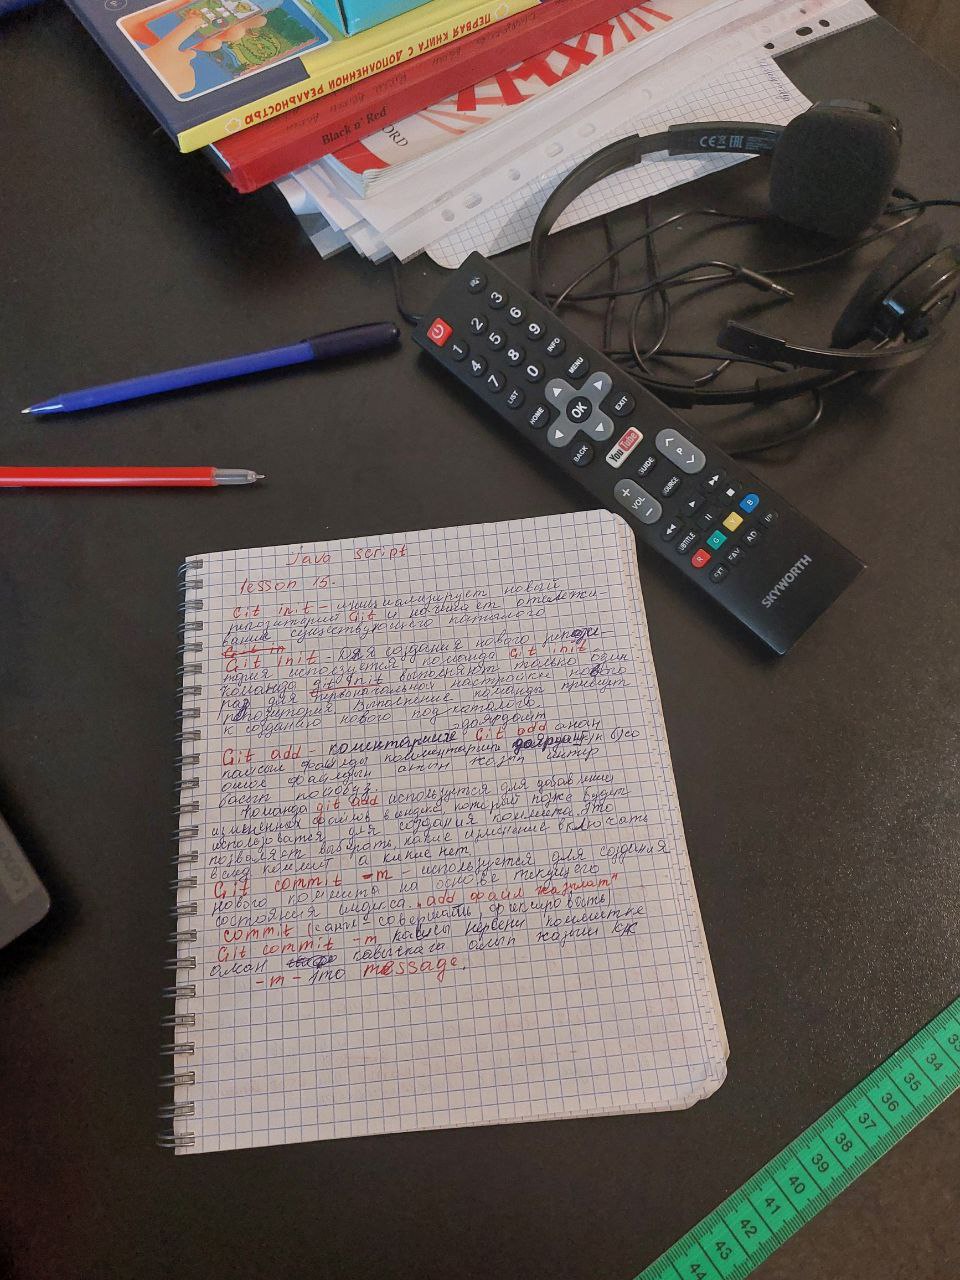 ПЕРВАЯ КНИГА С ДОПОЛНЕННОЙ РЕАЛЬНОСТЬЮ
Black n' Red
ORD
CE EAC
1 2 3
4 5 6
7 8 9
LIST 0 INFO
HOME MENU
OK
BACK EXIT
YouTube
GUIDE
VOL P
SOURCE
SUBTITLE
R G Y B
FAV AD
SKYWORTH
Lenovo
Java script
lesson 15.
Git init – инициализирует новый
репозиторий Git и начинает отслежи-
вание существующего
Git in
Git init Для создания нового репози-
тория используется команда Git init
Команда git init выполняют только один
раз для первоначальной настройки нового
репозитория Выполнение команды приведет
к созданию нового под-каталога.
Git add – коментарийге даярдайт
Git add анан
файлды комментарий
файлдын атын жазып энтер
басып коюобуз.
Команда git add используется для добавления
измененных файлов в индекс который позже будет
использоватся для создания коммита. Это
позволяет выбрать, какие изменение включать
в след коммит а какие нет
Git commit -m – используется для создания
нового коммита на основе текущего
состояния индекса. „add файл жазылат"
commit (с анг – совершать, фиксировать
Git commit -m
кавычкага алып жазыш кк
-m – это message.
33
34
35
36
37
38
39
40
41
42
43
44